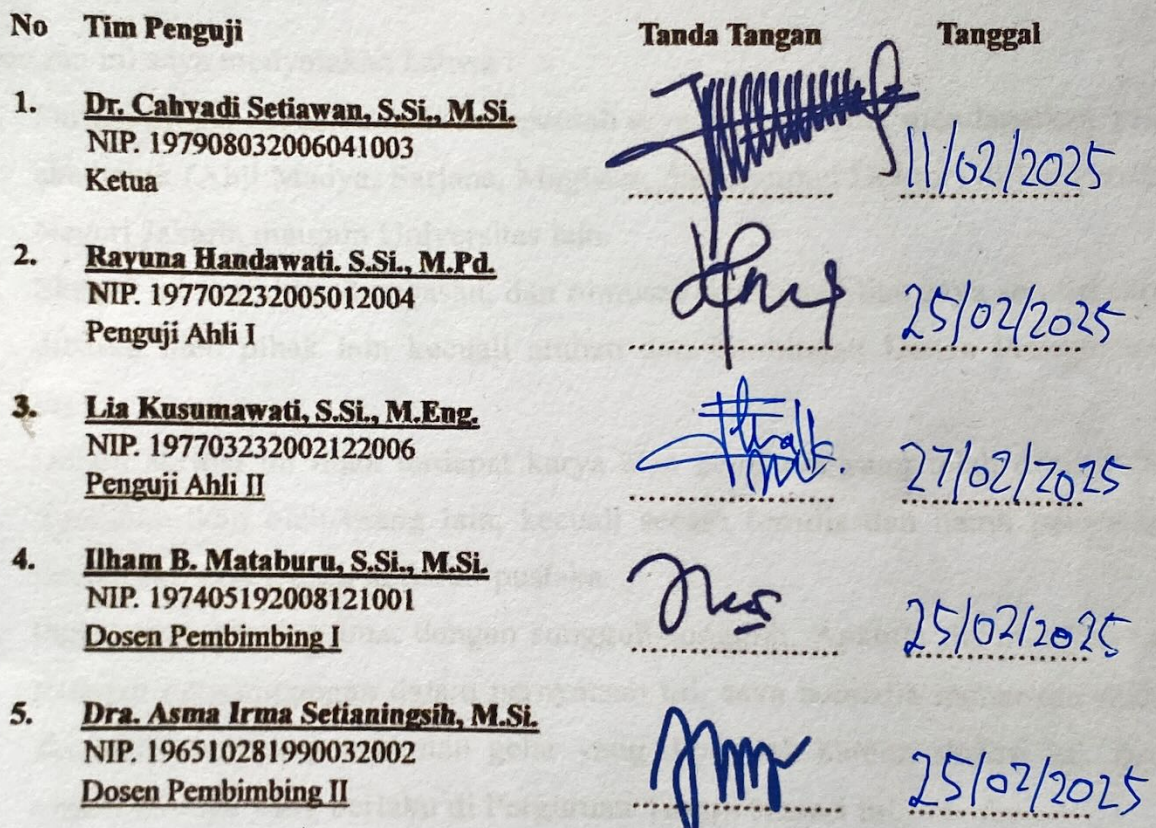 No Tim Penguji Tanda Tangan Tanggal
1. Dr. Cahyadi Setiawan, S.Si., M.Si.
NIP. 197908032006041003
Ketua 11/02/2025
2. Rayuna Handawati. S.Si., M.Pd.
NIP. 197702232005012004
Penguji Ahli I 25/02/2025
3. Lia Kusumawati, S.Si., M.Eng.
NIP. 197703232002122006
Penguji Ahli II 27/02/2025
4. Ilham B. Mataburu, S.Si., M.Si.
NIP. 197405192008121001
Dosen Pembimbing I 25/02/2025
5. Dra. Asma Irma Setianingsih, M.Si.
NIP. 196510281990032002
Dosen Pembimbing II 25/02/2025